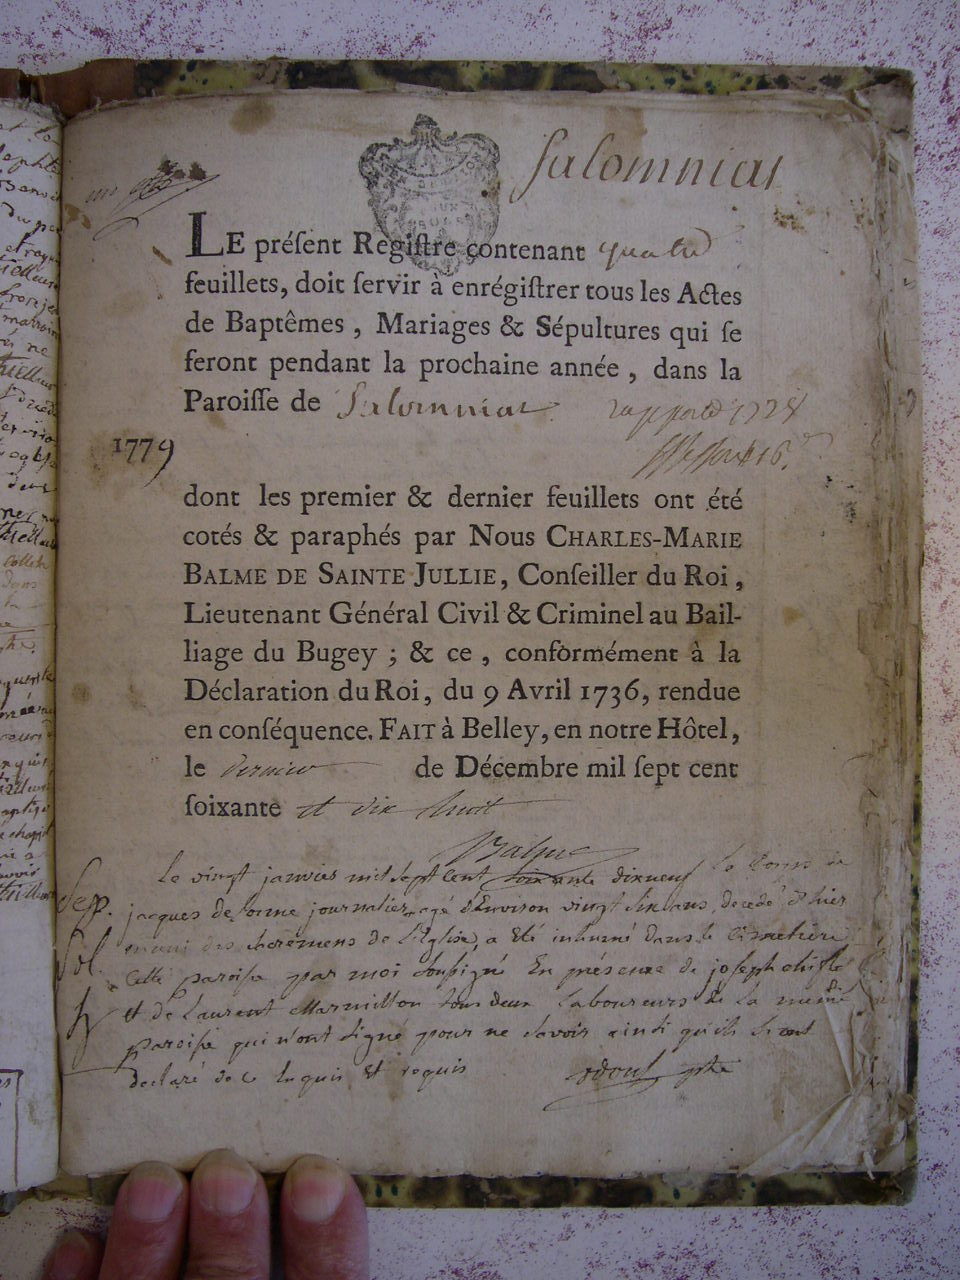 Salomniat
LE préſent Regiſtre contenant quatre
feuillets, doit ſervir à enrégiſtrer tous les Actes
de Baptêmes, Mariages & Sépultures qui ſe
feront pendant la prochaine année, dans la
Paroiſſe de Salomniat
1779
dont les premier & dernier feuillets ont été
cotés & paraphés par Nous CHARLES-MARIE
BALME DE SAINTE JULLIE, Conſeiller du Roi,
Lieutenant Général Civil & Criminel au Bail-
liage du Bugey ; & ce, conformément à la
Déclaration du Roi, du 9 Avril 1736, rendue
en conſéquence. FAIT à Belley, en notre Hôtel,
le dernier de Décembre mil ſept cent
ſoixante et dix huit
Balme
Le vingt janvier mil sept cent soixante dixneuf le corps de
Sep. jacques journalier agé d'Environ vingt six ans, decedé d'hier
muni des sacremens de l'Eglise, a été inhumé dans le cimetiere
cette paroise par moi sousigné En présence de joseph
et de Laurent Marmillon tous deux Laboureurs de la meme
paroise qui n'ont signé pour ne savoir ainsi qu'ils l'ont
declaré de ce Enquis Et requis